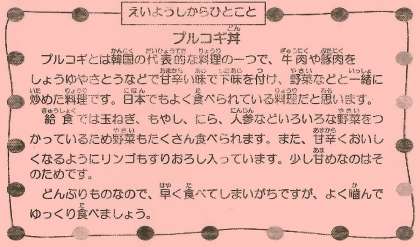 えいようしからひとこと
プルコギ丼
プルコギとは韓国の代表的な料理の一つで、牛肉や豚肉を
しょうゆやさとうなどで甘辛い味で下味を付け、野菜などと一緒に
炒めた料理です。日本でもよく食べられている料理だと思います。
給食では玉ねぎ、もやし、にら、人参などいろいろな野菜をつ
かっているため野菜もたくさん食べられます。また、甘辛くおいし
くなるようにリンゴもすりおろし入っています。少し甘めなのはそ
のためです。
どんぶりものなので、早く食べてしまいがちですが、よく噛んで
ゆっくり食べましょう。